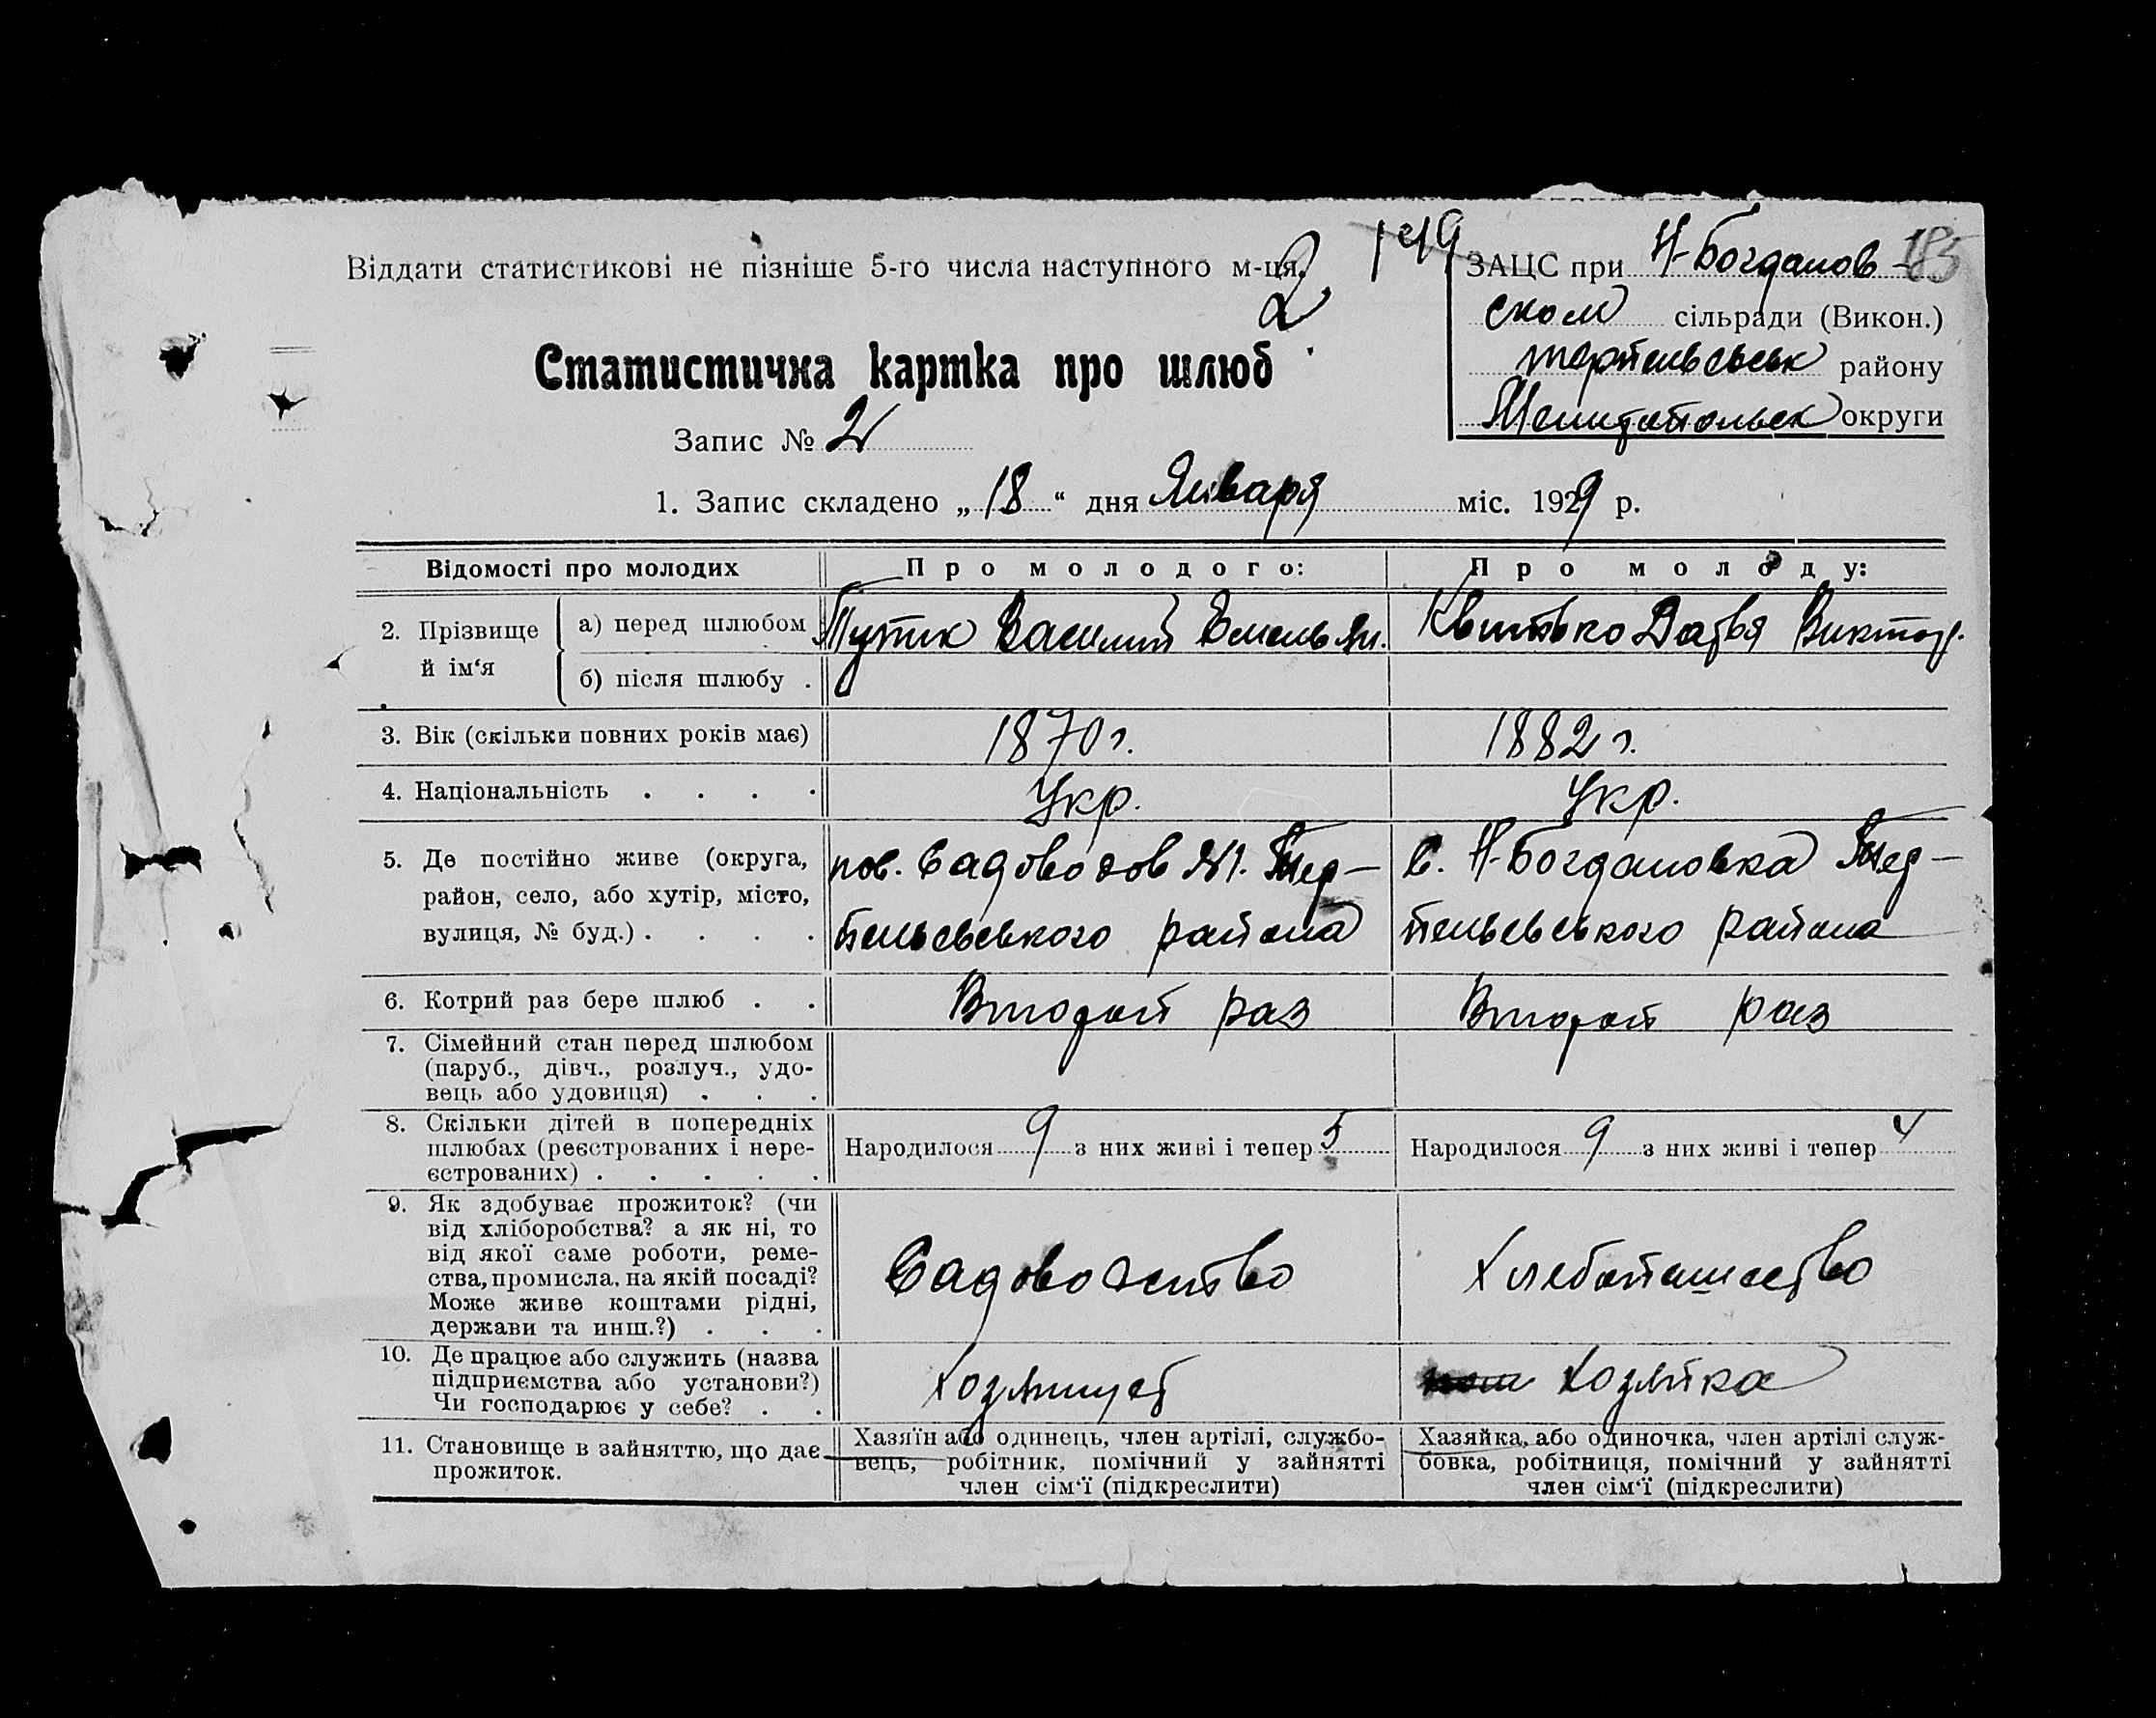 Віддати статистикові не пізніше 5-го числа наступного м-ця.
2
149
185
ЗАЦС при Н-Богданов
ском сільради (Викон.)
Терпельевськ району
Мелитопольск округи
Статистична картка про шлюб
Запис № 2
1. Запис складено „ 18 “ дня Января міс. 1929 р.
Відомості про молодих Про молодого: Про молоду:
2. Прізвище й ім‘я
а) перед шлюбом Василий Емельян. Квитько Дарья Виктор.
б) після шлюбу .
3. Вік (скільки повних років має) 1870 г. 1882 г.
4. Національність . . . . Укр. Укр.
5. Де постійно живе (округа, район, село, або хутір, місто, вулиця, № буд.) . . . .
пос. Садоводов №1. Тер-
пельевського района
с. Н-Богдановка Тер-
пельевського района
6. Котрий раз бере шлюб . . Второй раз Второй раз
7. Сімейний стан перед шлюбом
(паруб., дівч., розлуч., удо-
вець або удовиця) . . .
8. Скільки дітей в попередніх
шлюбах (реєстрованих і нере-
єстрованих) . . . . .
Народилося 9 з них живі і тепер 5
Народилося 9 з них живі і тепер 4
9. Як здобуває прожиток? (чи
від хліборобства? а як ні, то
від якої саме роботи, реме-
ства, промисла, на якій посаді?
Може живе коштами рідні,
держави та инш.?) . . .
Садоводство
Хлебопашество
10. Де працює або служить (назва
підприємства або установи?)
Чи господарює у себе? . .
Хозяинует
Хозяйка
11. Становище в зайняттю, що дає
прожиток.
Хазяїн або одинець, член артілі, службо-
вець, робітник, помічний у зайнятті
член сім‘ї (підкреслити)
Хазяйка, або одиночка, член артілі служ-
бовка, робітниця, помічний у зайнятті
член сім‘ї (підкреслити)